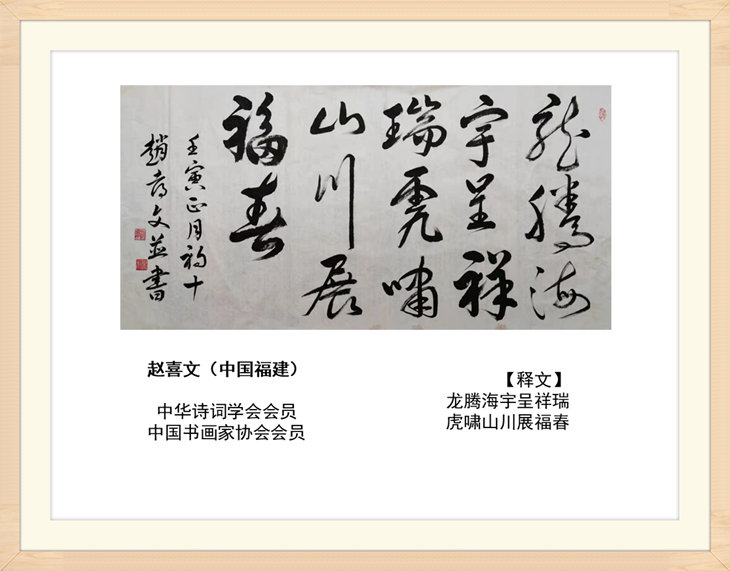 龍騰海
宇呈祥
瑞虎嘯
山川展
福春
壬寅正月初十
趙喜文並書
赵喜文（中国福建）
中华诗词学会会员
中国书画家协会会员
【释文】
龙腾海宇呈祥瑞
虎啸山川展福春